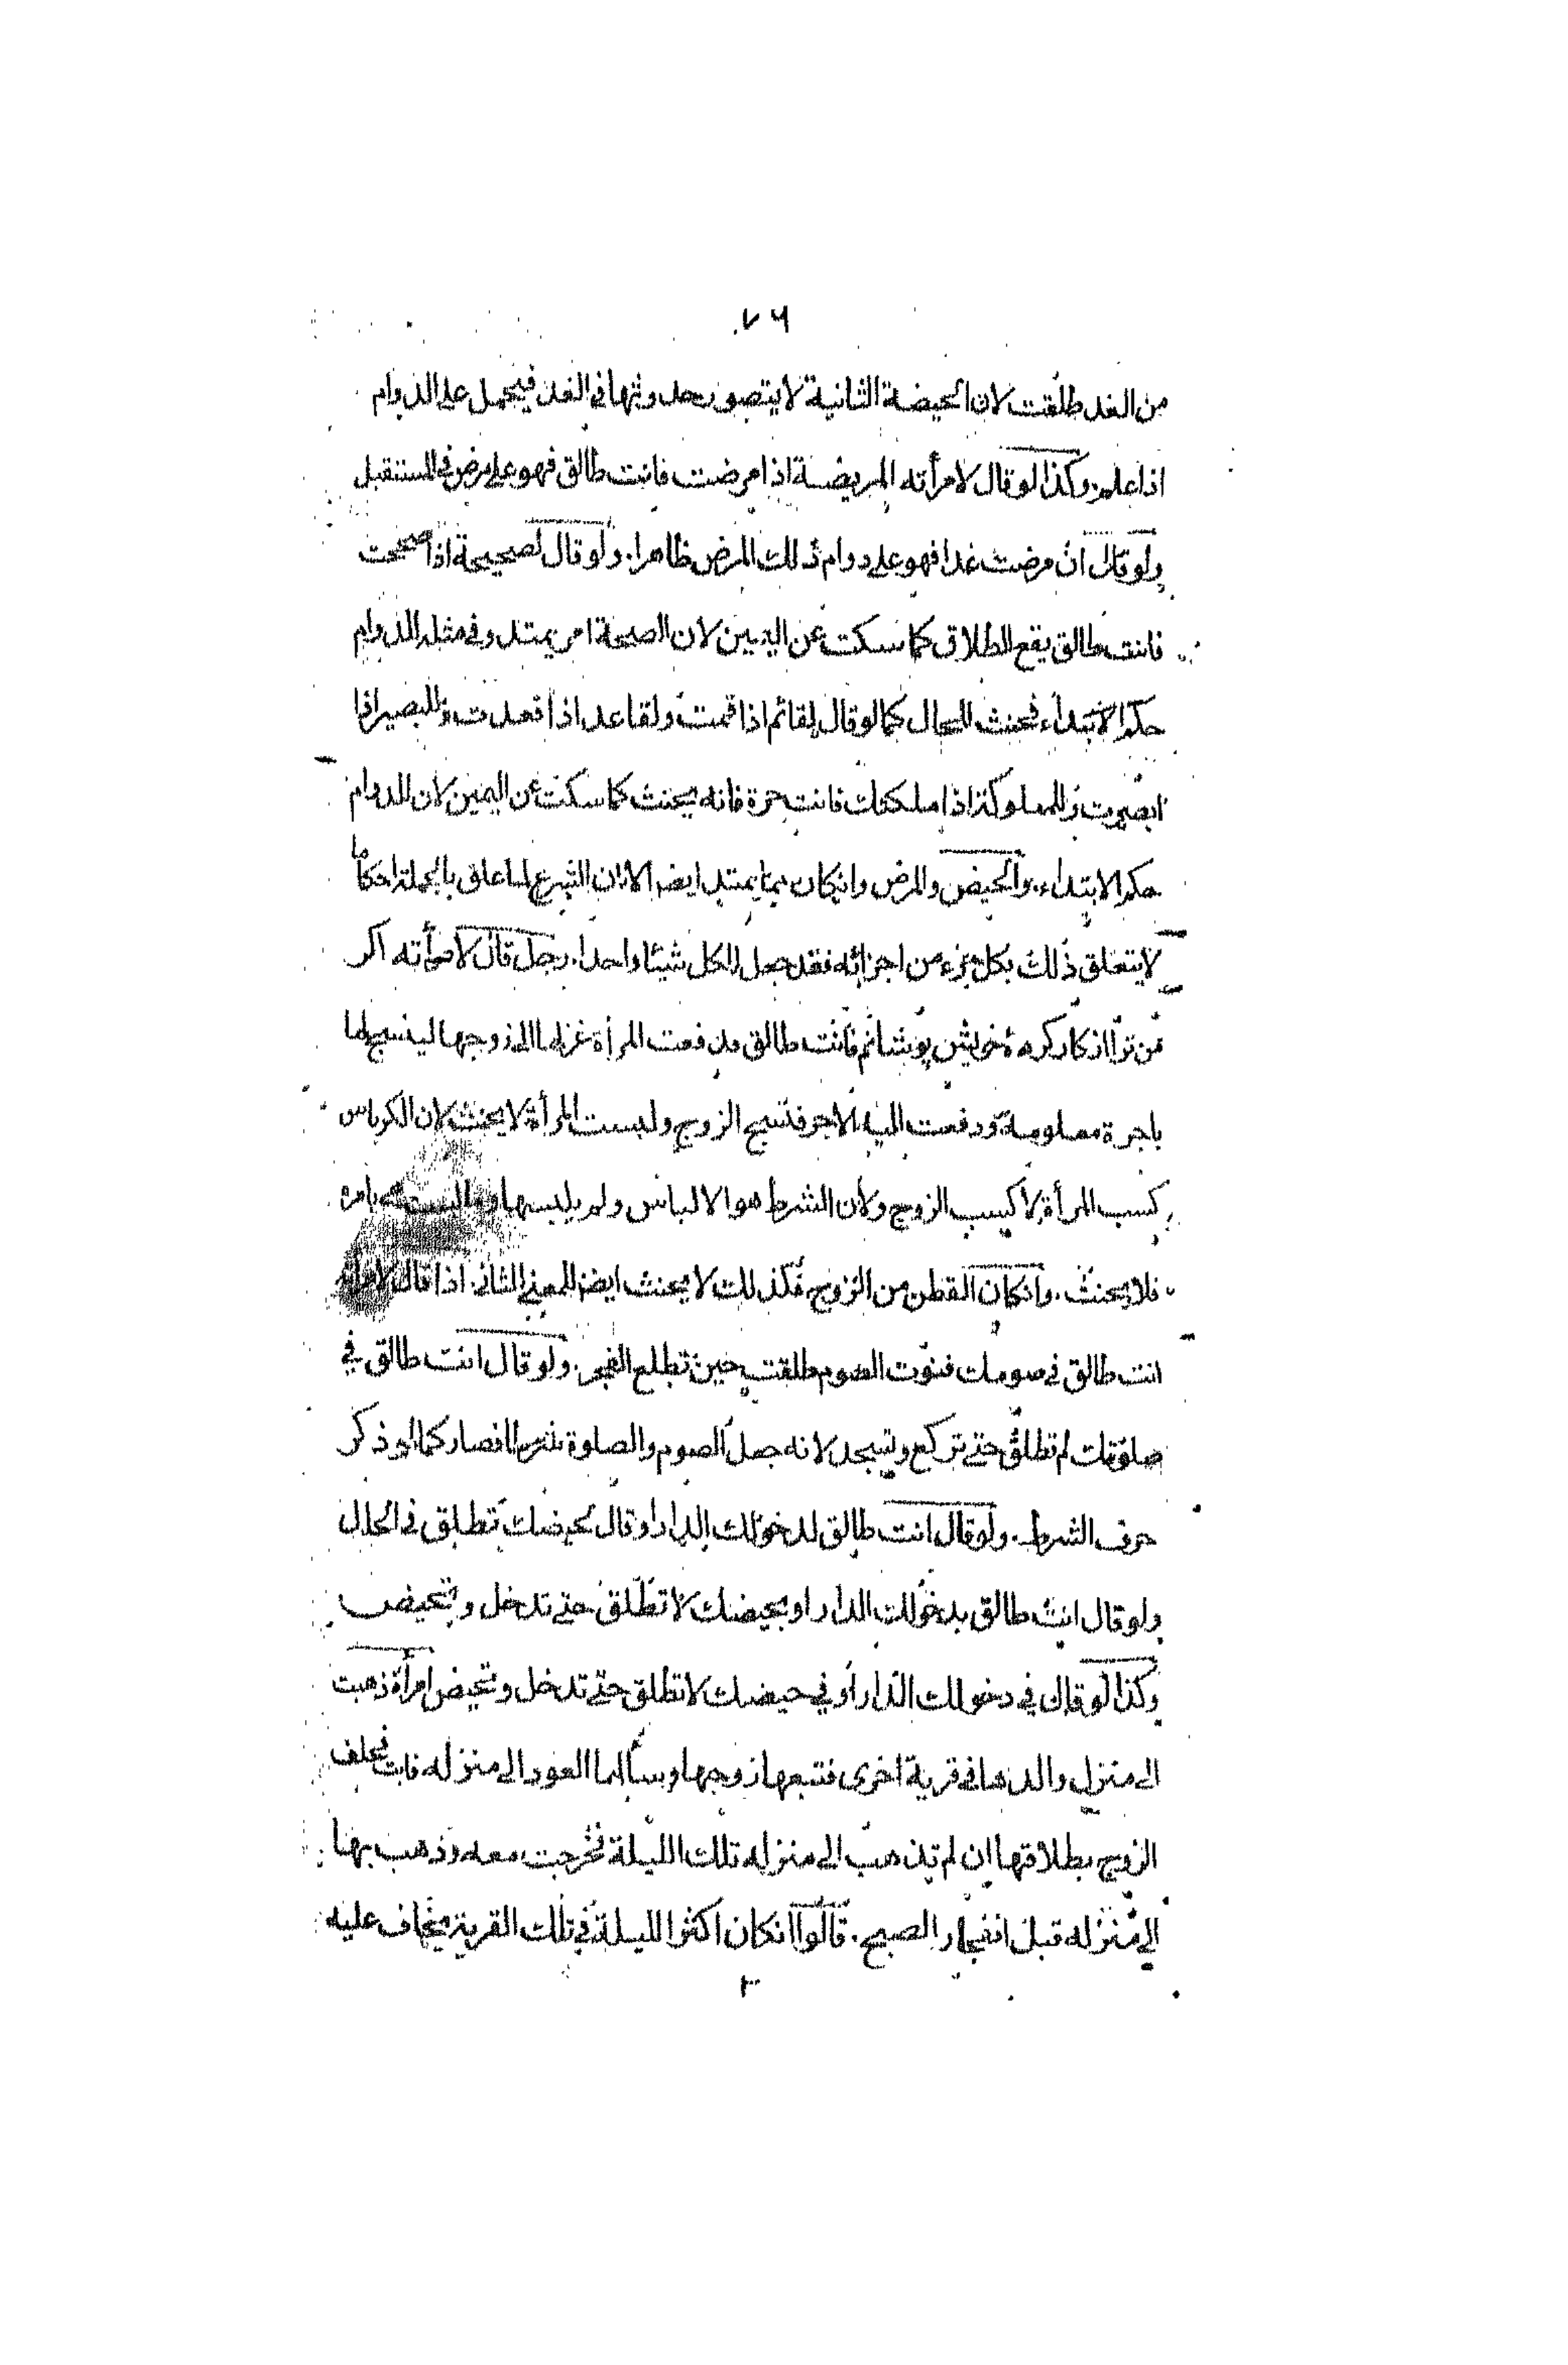 ٧٦
من الغد طلقت لان الحيضة الثانية لا يتصور حدوثها فى الغد فيحمل على الدوام
اذا علم. وكذا لو قال لامرأته المريضة اذا مرضت فانت طالق فهو على مرض فى المستقبل
ولو قال ان مرضت غدا فهو على دوام ذلك المرض ظاهرا. ولو قال لصحيحة اذا صححت
فانت طالق يقع الطلاق كما سكت عن اليمين لان الصحة امر يمتد وفى مثله للدوام
حكم الابتداء فحنث للحال كما لو قال لقائم اذا قمت ولقاعد اذا قعدت وللبصير اذا
ابصرت وللمملوكة اذا ملكتك فانت حرة فانه يحنث كما سكت عن اليمين لان للدوام
حكم الابتداء. والحيض والمرض وانكان مما يمتد ايضا الا ان الشرع لما علق بالجملة احكاما
لا يتعلق ذلك بكل جزء من اجزائه فقد جعل الكل شيئا واحدا. رجل قال لامرأته اكر
من ترا از كار كرده خويش بوشانم فانت طالق فدفعت المرأة غزلها الى زوجها لينسجها
باجرة معلومة ودفعت اليه الاجر فنسج الزوج ولبست المرأة لا يحنث لان الكرباس
كسب المرأة لا كسب الزوج ولان الشرط هو الالباس ولم يلبسها وما لبست بامره
فلا يحنث. وانكان القطن من الزوج فكذلك لا يحنث ايضا للمعنى الثانى. اذا قال لامرأته
انت طالق فى صومك فنوت الصوم طلقت حين تطلع الفجر. ولو قال انت طالق فى
صلوتك لم تطلق حتى تركع وتسجد لانه جعل الصوم والصلوة شرطا فصار كما لو ذكر
حرف الشرط. ولو قال انت طالق لدخولك الدار او قال لحيضك تطلق فى الحال
ولو قال انت طالق بدخولك الدار او بحيضك لا تطلق حتى تدخل وتحيض
وكذا لو قال فى دخولك الدار او فى حيضك لا تطلق حتى تدخل وتحيض امرأة ذهبت
الى منزل والدها فى قرية اخرى فتبعها زوجها وسألها العود الى منزله فابت فحلف
الزوج بطلاقها ان لم تذهب الى منزله تلك الليلة فخرجت معه وذهب بها
الى منزله قبل انفجار الصبح. قالوا انكان اكثر الليلة فى تلك القرية يخاف عليه